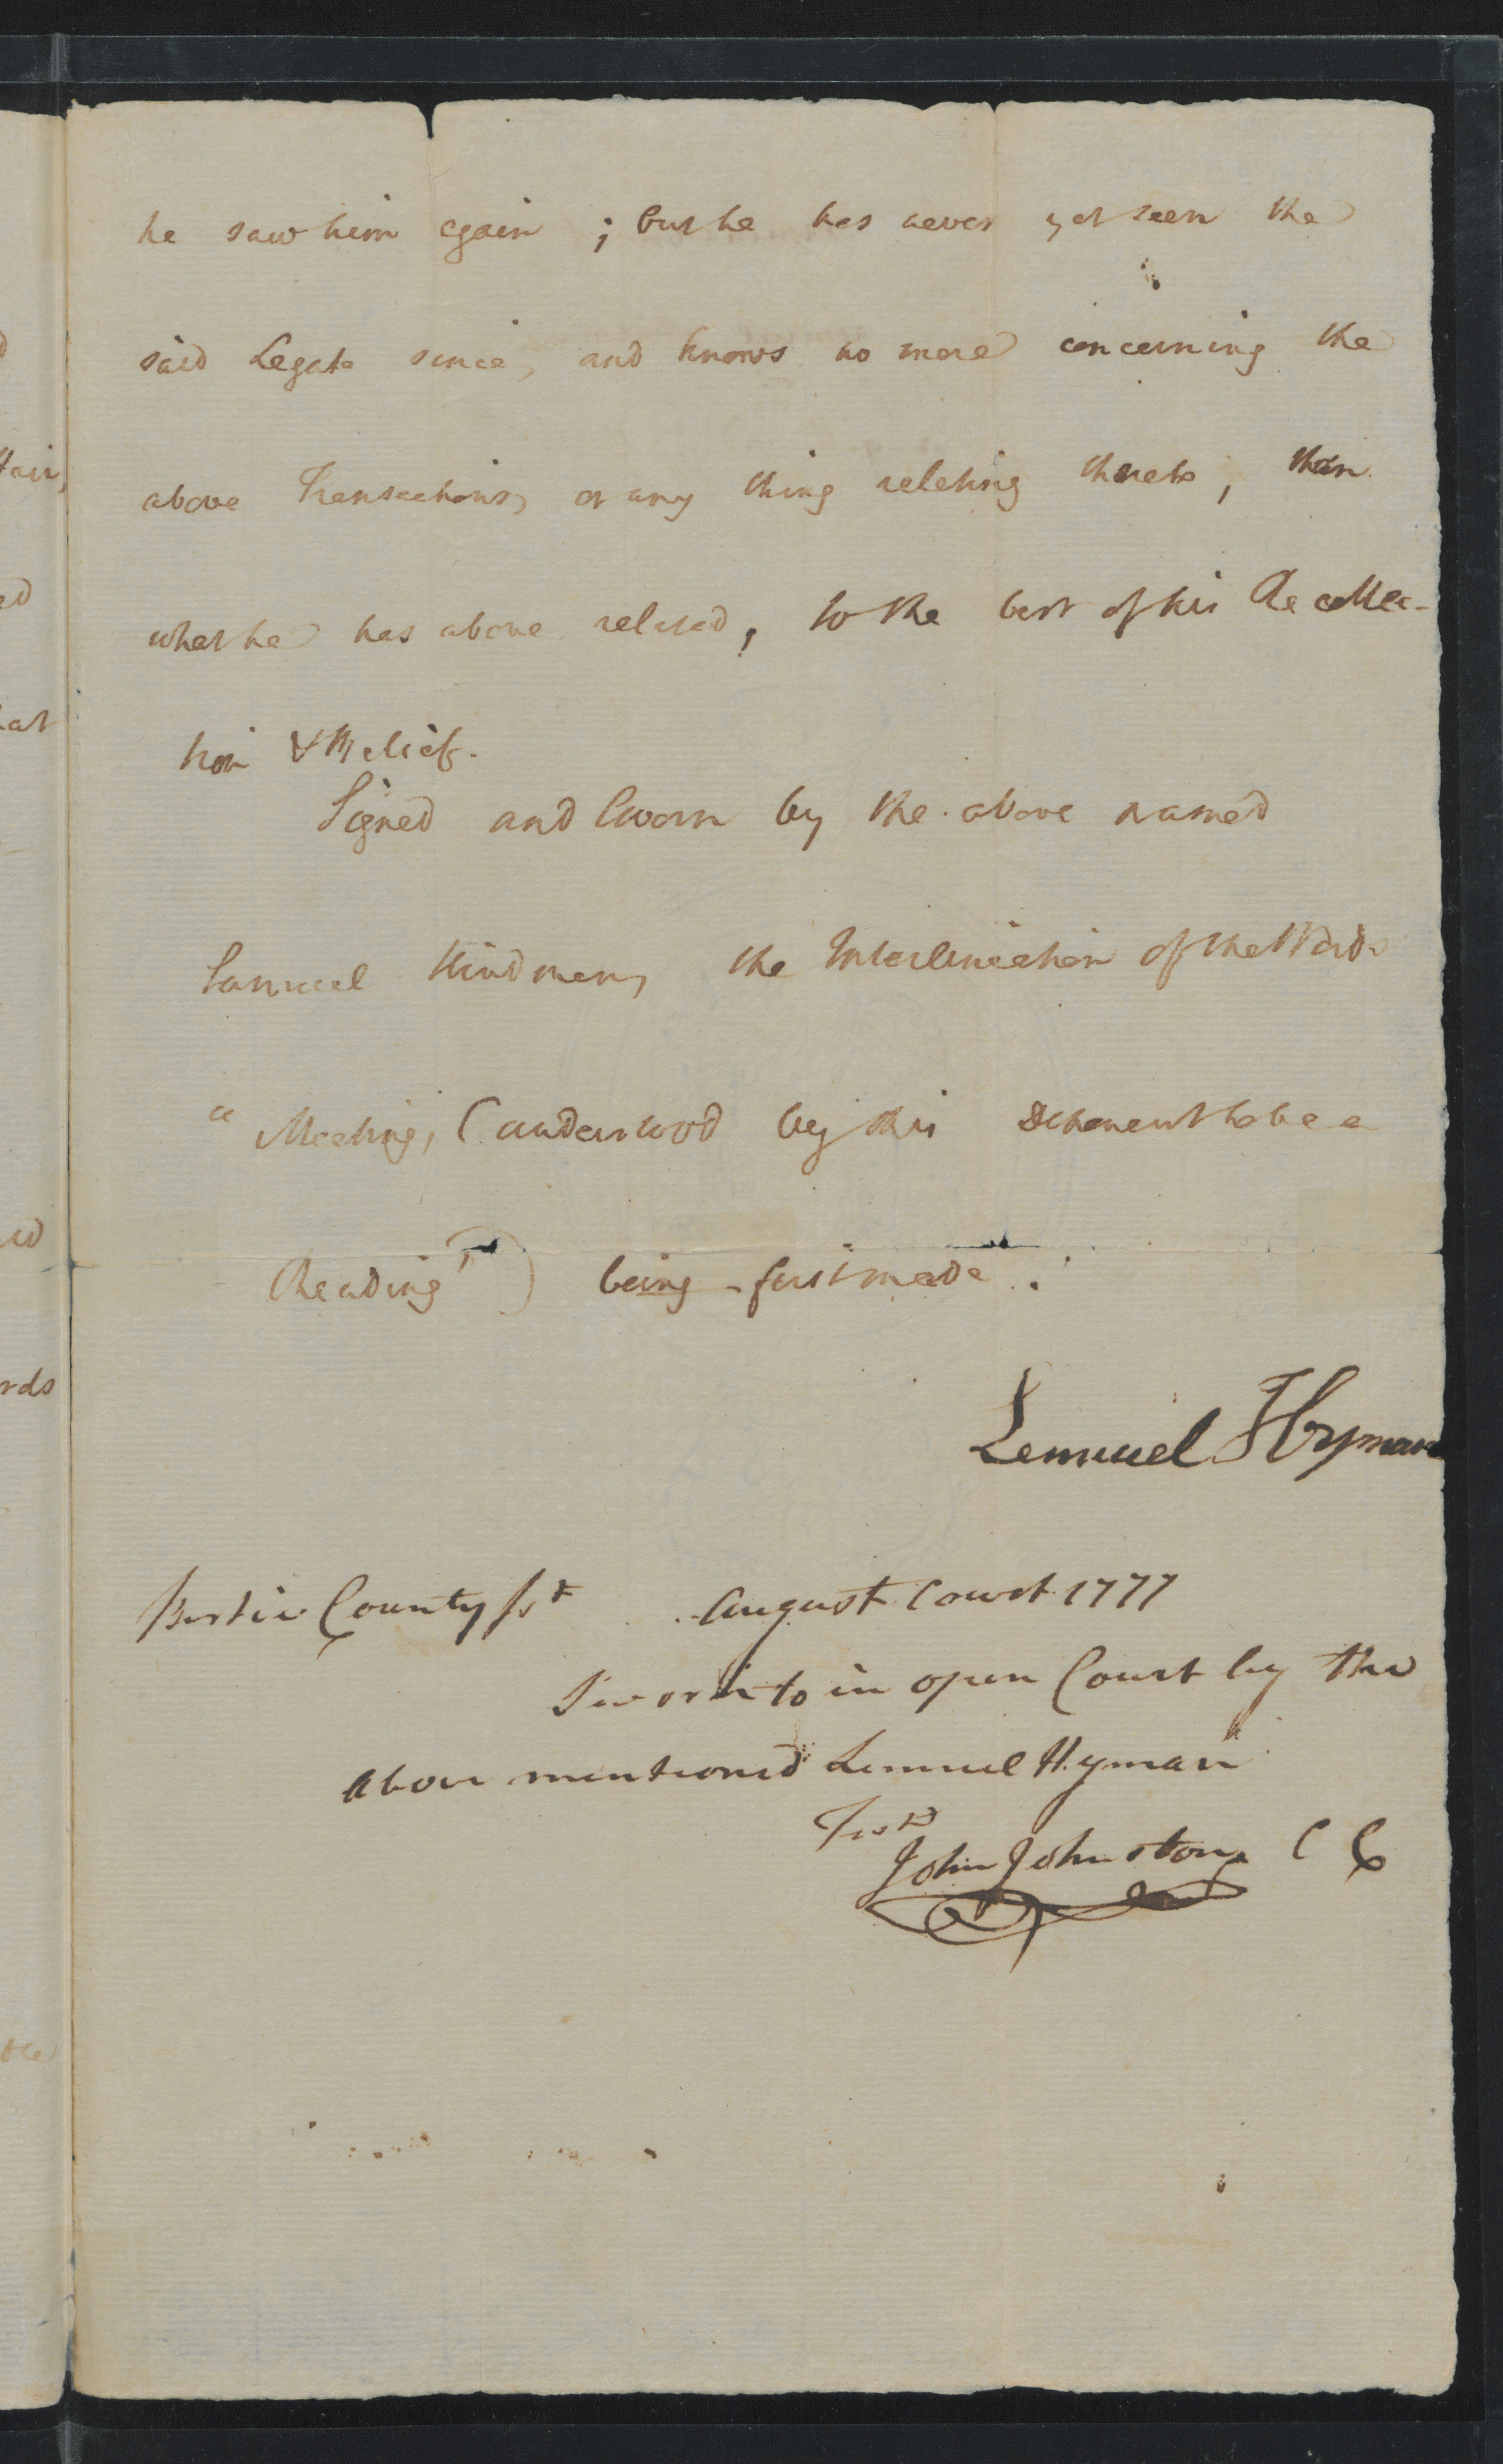 he saw him again ; but he has never yet seen the
said Legate since, and knows no more concerning the
above Transactions, or any thing relating thereto, than
what he has above related, to the best of his Recollec-
tion & Belief.
Signed and Sworn by the above named
the Interlineation of the Words
" Meeting, (understood by this Deponent to be a
Reading") being first made.
Lemuel Hyman
Bertie County Sst August Court 1777
Sworn to in open Court by the
above mentioned Lemuel Hyman
Test
John Johnston C C
air,
ed
at
ed
rds